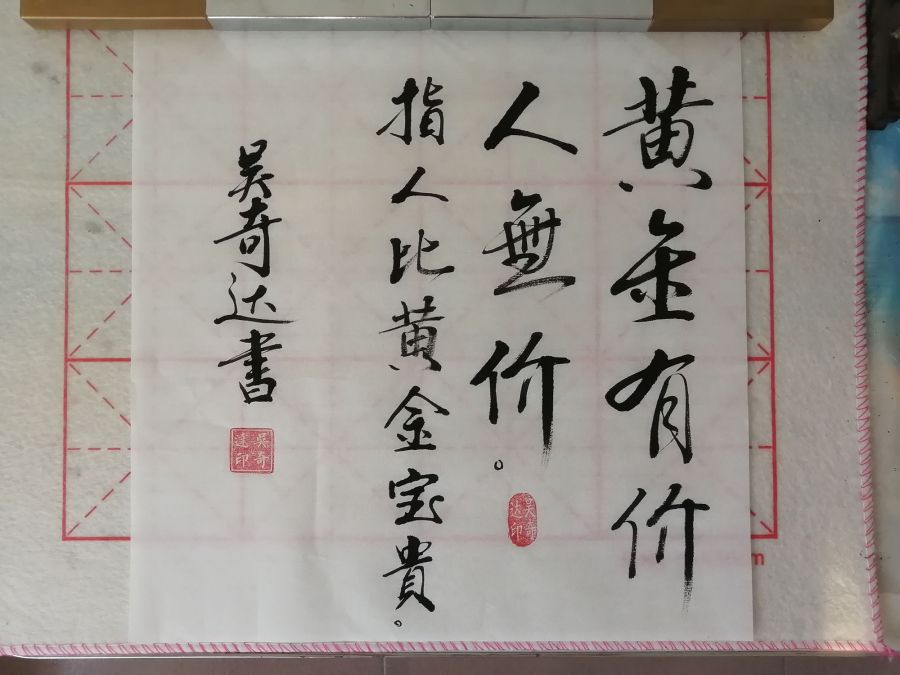 黄金有价
人無价。
指人比黄金宝貴。
吴奇达書
吴奇达印
吴奇達印
m